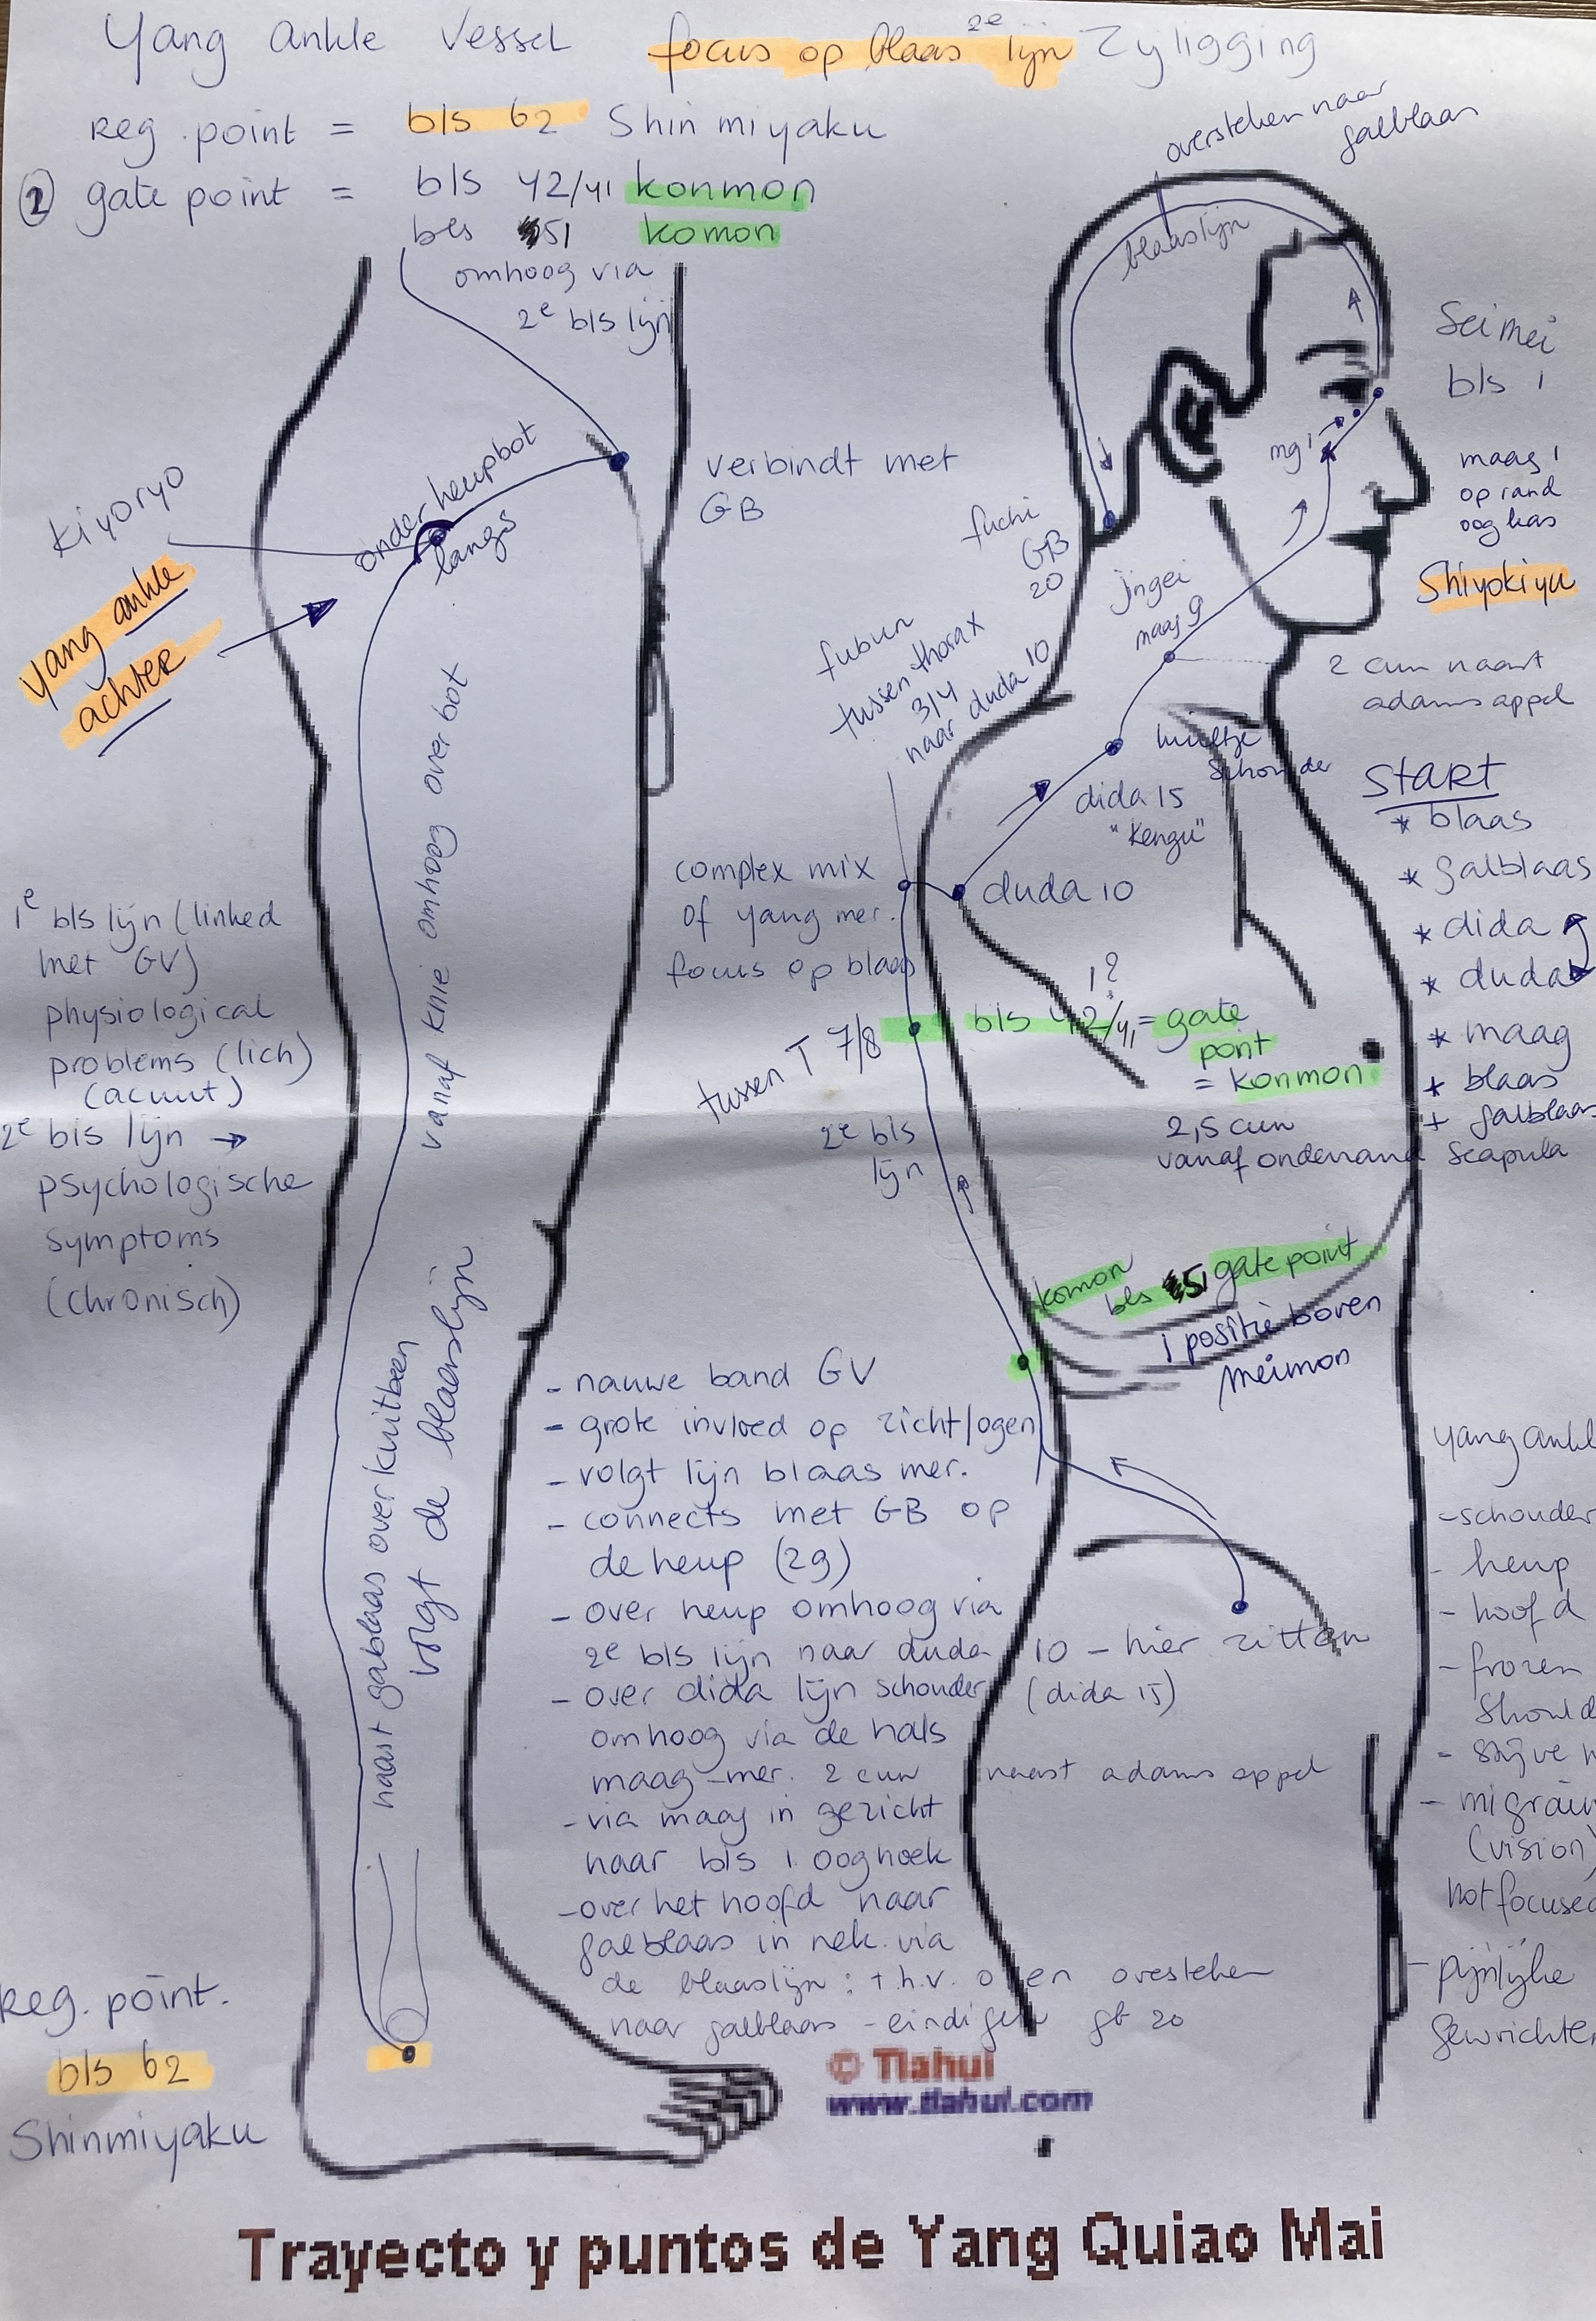 Yang Ankle Vessel focus op blaas 2e lijn Zijligging
Reg. point = bls 62 Shinmiyaku
② gate point = bls 42/41 konmon
bls 51 komon
omhoog via
2e bls lijn
oversteken naar
galblaas
blaaslijn
Seimei
bls 1
mg 1
maag 1
op rand
oogkas
Shiyokiyu
verbindt met
GB
onder heupbot
langs
Kiyoryo
yang ankle
achter
fuchi
GB
20
jingei
maag 9
2 cun naast
adamsappel
fubun
tussen thorax
3/4
naar duda 10
kuiltje
schouder
dida 15
"Kengu"
START
* blaas
* galblaas
* dida
* duda
* maag
* blaas
+ galblaas
complex mix
of yang mer.
focus op blaas
duda 10
vanaf knie omhoog over bot
1e bls lijn (linked
met GV)
physiological
problems (lich)
(acuut)
2e bls lijn →
psychologische
symptoms
(chronisch)
1?
tussen T 7/8
bls 42/41 = gate
point
= konmon
2,5 cun
vanaf onderrand scapula
2e bls
lijn
komon
bls 51 gate point
1 positie boven
meimon
naast galblaas over kuitbeen
volgt de blaaslijn
- nauwe band GV
- grote invloed op zicht/ogen
- volgt lijn blaas mer.
- connects met GB op
de heup (29)
- over heup omhoog via
2e bls lijn naar duda 10 - hier zitten
- over dida lijn schouder (dida 15)
omhoog via de hals
maag-mer. 2 cun naast adamsappel
- via maag in gezicht
naar bls 1 ooghoek
- over het hoofd naar
galblaas in nek via
de blaaslijn: t.h.v. oren oversteken
naar galblaas - eindigen gb 20
yang ankl
- schouder
- heup
- hoofd
- frozen
should
- stijve n
- migrain
(vision)
not focused
- pijnlijke
gewrichten
Reg. point.
bls 62
Shinmiyaku
© Tlahui
www.tlahui.com
Trayecto y puntos de Yang Quiao Mai